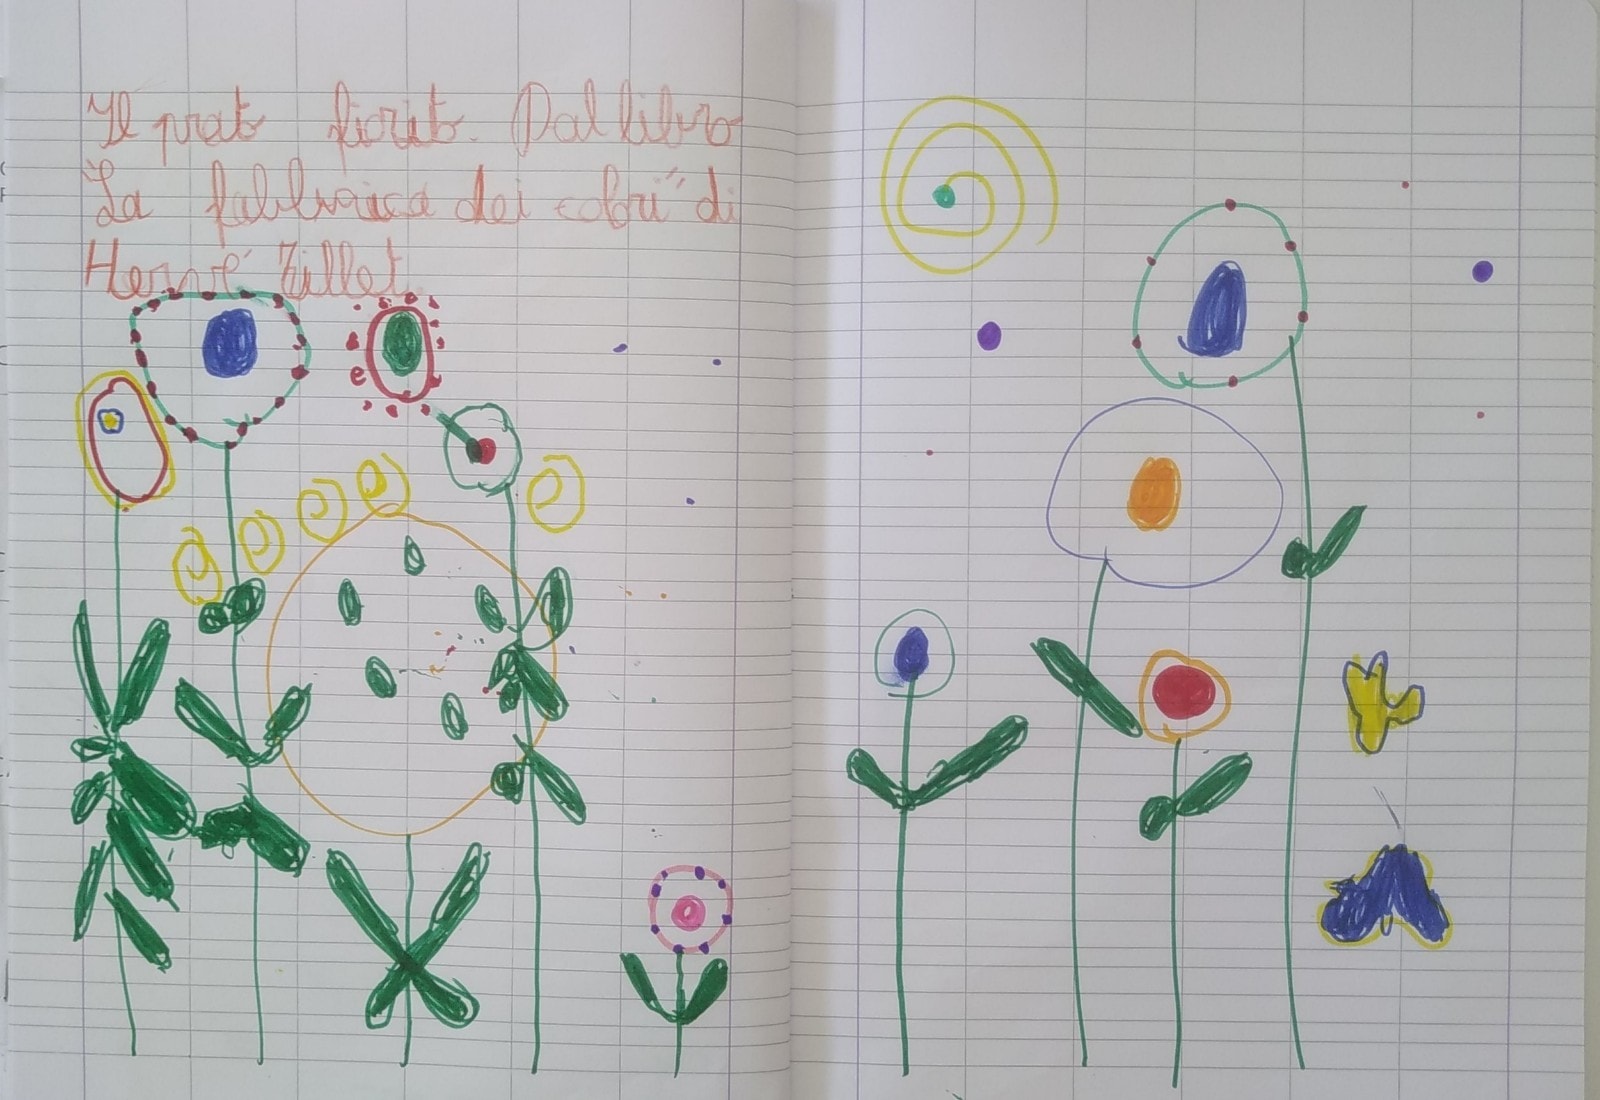 Il prato fiorito. Dal libro
"La fabbrica dei colori" di
Hervé Tullet.